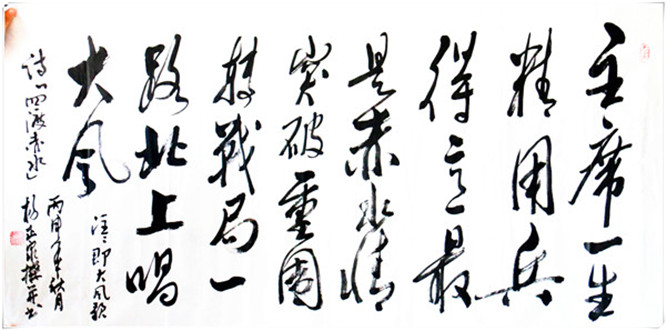 主席一生
精用兵
得意最
是赤水情
突破重围
转战局一
路北上唱
大风
注：即大风歌
诗《四渡赤水》
丙申年秋月
撰并书